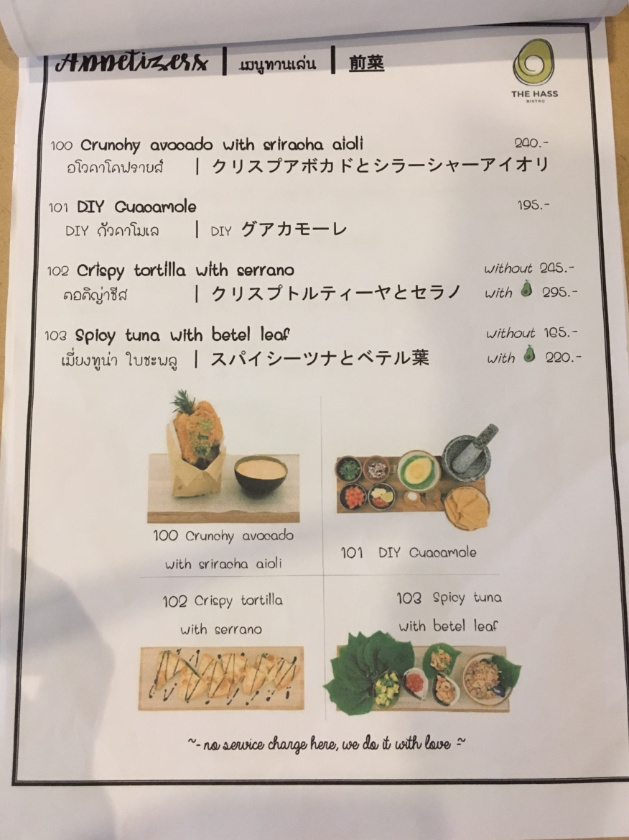 Appetizers | เมนูทานเล่น | 前菜
THE HASS
BISTRO
100 Crunchy avocado with sriracha aioli 240.-
อโวคาโดปรายส์ | クリスプアボカドとシラーシャーアイオリ
101 DIY Guacamole 195.-
DIY กัวคาโมเล | DIY グアカモーレ
102 Crispy tortilla with serrano without 245.-
คอคิญ่าชีส | クリスプトルティーヤとセラノ with 295.-
103 Spicy tuna with betel leaf without 165.-
เมี่ยงทูน่า ใบชะพลู | スパイシーツナとベテル葉 with 220.-
100 Crunchy avocado
with sriracha aioli
101 DIY Guacamole
102 Crispy tortilla
with serrano
103 Spicy tuna
with betel leaf
~- no service charge here, we do it with love -~